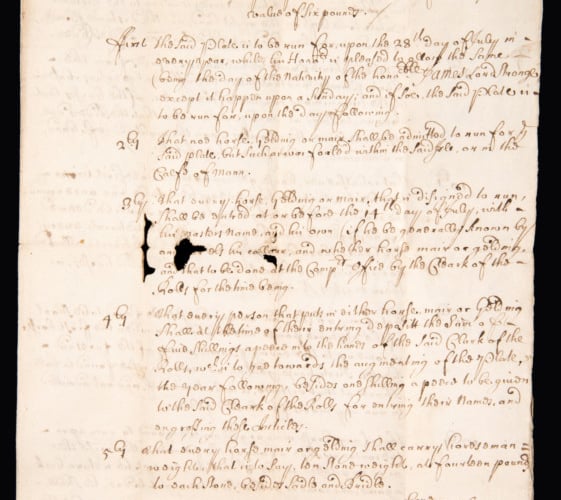 value of six pounds.
first the said plate is to be run for, upon the 28th day of July in
every year, while his Honor is pleased to allow the same
being the day of the Nativity of the honoble James Lord Strange
except it happen upon a Sunday; and if soe, the said plate is
to be run for, upon the day following.
2ly That noe horse, gelding or mair shall be admitted to run for ye
said plate, but such as was foaled within the said Isle, or in the
Calfe of Mann.
3ly That every horse, gelding or mair, that is design'd to run
shall be entred at or before the 14th day of July, with
his masters Name, and his own if he be generally known by
any els his collour, and whether horse mair or gelding,
and that to be done at the Compt office by the Cleark of the
Rolls for the time being.
4ly That every person that puts in either horse, mair or gelding
shall at the time of their entring depositt the sum of
five shillings apeece into the hands of the said Clark of the
Rolls, wch is to goe towards the augmenting of the plate,
the year following, besides one shilling a peece to be given
to the said Cleark of the Rolls for entring their Names, and
engrossing these articles.
5ly That every horse, mair or gelding shall carry horseman =
weight, that is to say, ten stone weight, at fourteen pound
to each stone, besides Sadle and Bridle.